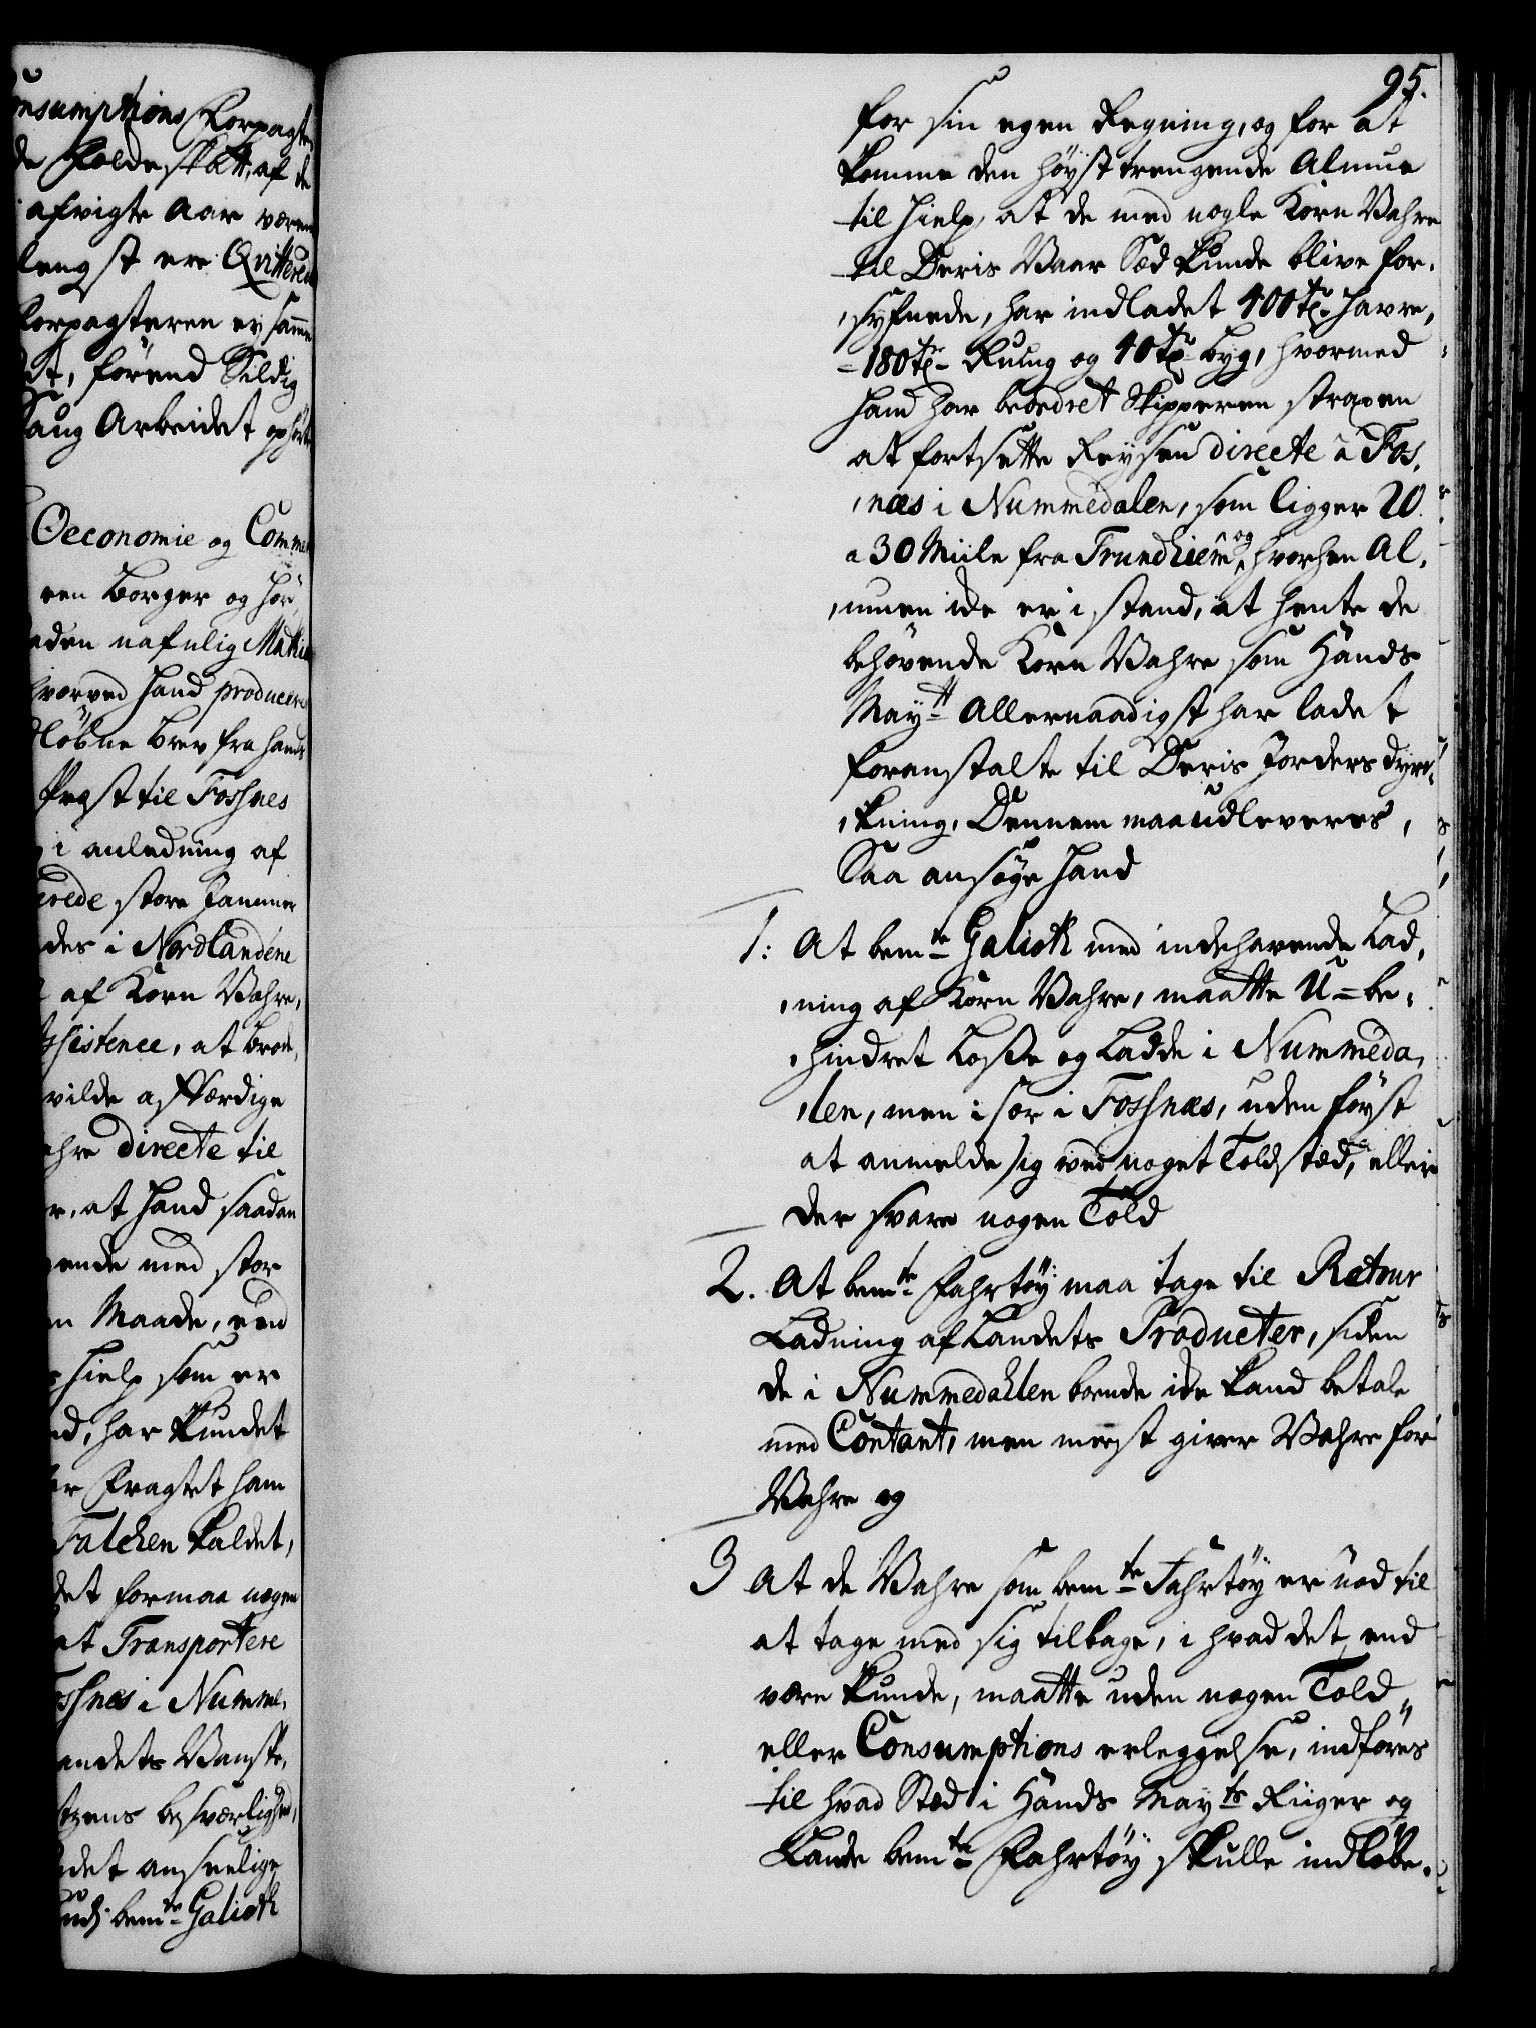 onsumptions Forpagte
de holde skatt, af de
afvigte Aar væren
lengst ere Qvittered
Forpagteren ej samme
dt, förend Sildig
Saug Arbeidet ophört
Oeconomie og Comme
een Borger og Hör
aden nafnlig Mathi
hvorved hand producere
löbne brev fra hands
Præst til Fossnes
i anledning af
erede store Jammer
des i Nordlandene
af Korn Vahre,
sistence, at brode
vilde affærdige
ahre directe til
r, at hand saadan
ende med stor
n Maade, end
hielp som er
d, har kundet
er Fragtet ham
Falchen kaldet,
det formaa nogen
at Transportere
ossnæs i Numme,
andets Vanske,
stens besværlighed,
det anseelige
udj bemte Galioth
95.
for sin egen Regning, og for at
komme den höyst trengende Almue
til hielp, at de med nogle Korn Vahre
til Deris Vaar Sæd kunde blive for,
,syfnede, har indladet 400 tr. Havre,
180 tr. Ruug og 40 tr. Byg, hvormed
hand har beordret Skipperen straxen
at fortsette Reysen directe a Fos,
,næs i Nummedalen, som ligger 20.
a 30 Miile fra Trundhiem og hvorhen Al,
,muen ide er i stand, at hente de
behövende Korn Vahre som Hands
Maytt Allernaadigst har ladet
foranstalte til Deris Jorders dyrd,
,kning, Dennem maa udleveres,
Saa ansöge hand
1: At bemte Galioth med indehavende Lad,
,ning af Korn Vahre, maatte U=be,
,hindret Losse og Ladde i Nummeda,
,len, men i sær i Fossnæs, uden först
at anmelde sig ved noget Toldsted, eller
der svare nogen Told
2. At bemte Fahrtöy maa tage til Retour
Ladning af Landets Producter, siden
de i Nummedahlen boende ide kand betale
med Contant, men meest giver Vahre for
Vahre og
3 At de Vahre som bemte Fahrtöy er nöd til
at tage med sig tilbage, i hvad det end
være kunde, maatte uden nogen Told,,
eller Consumptions erleggelse, indföres
til hvad Sted i Hands Mayts Riiger og
Lande bemte Fahrtöy skulle indlöbe.